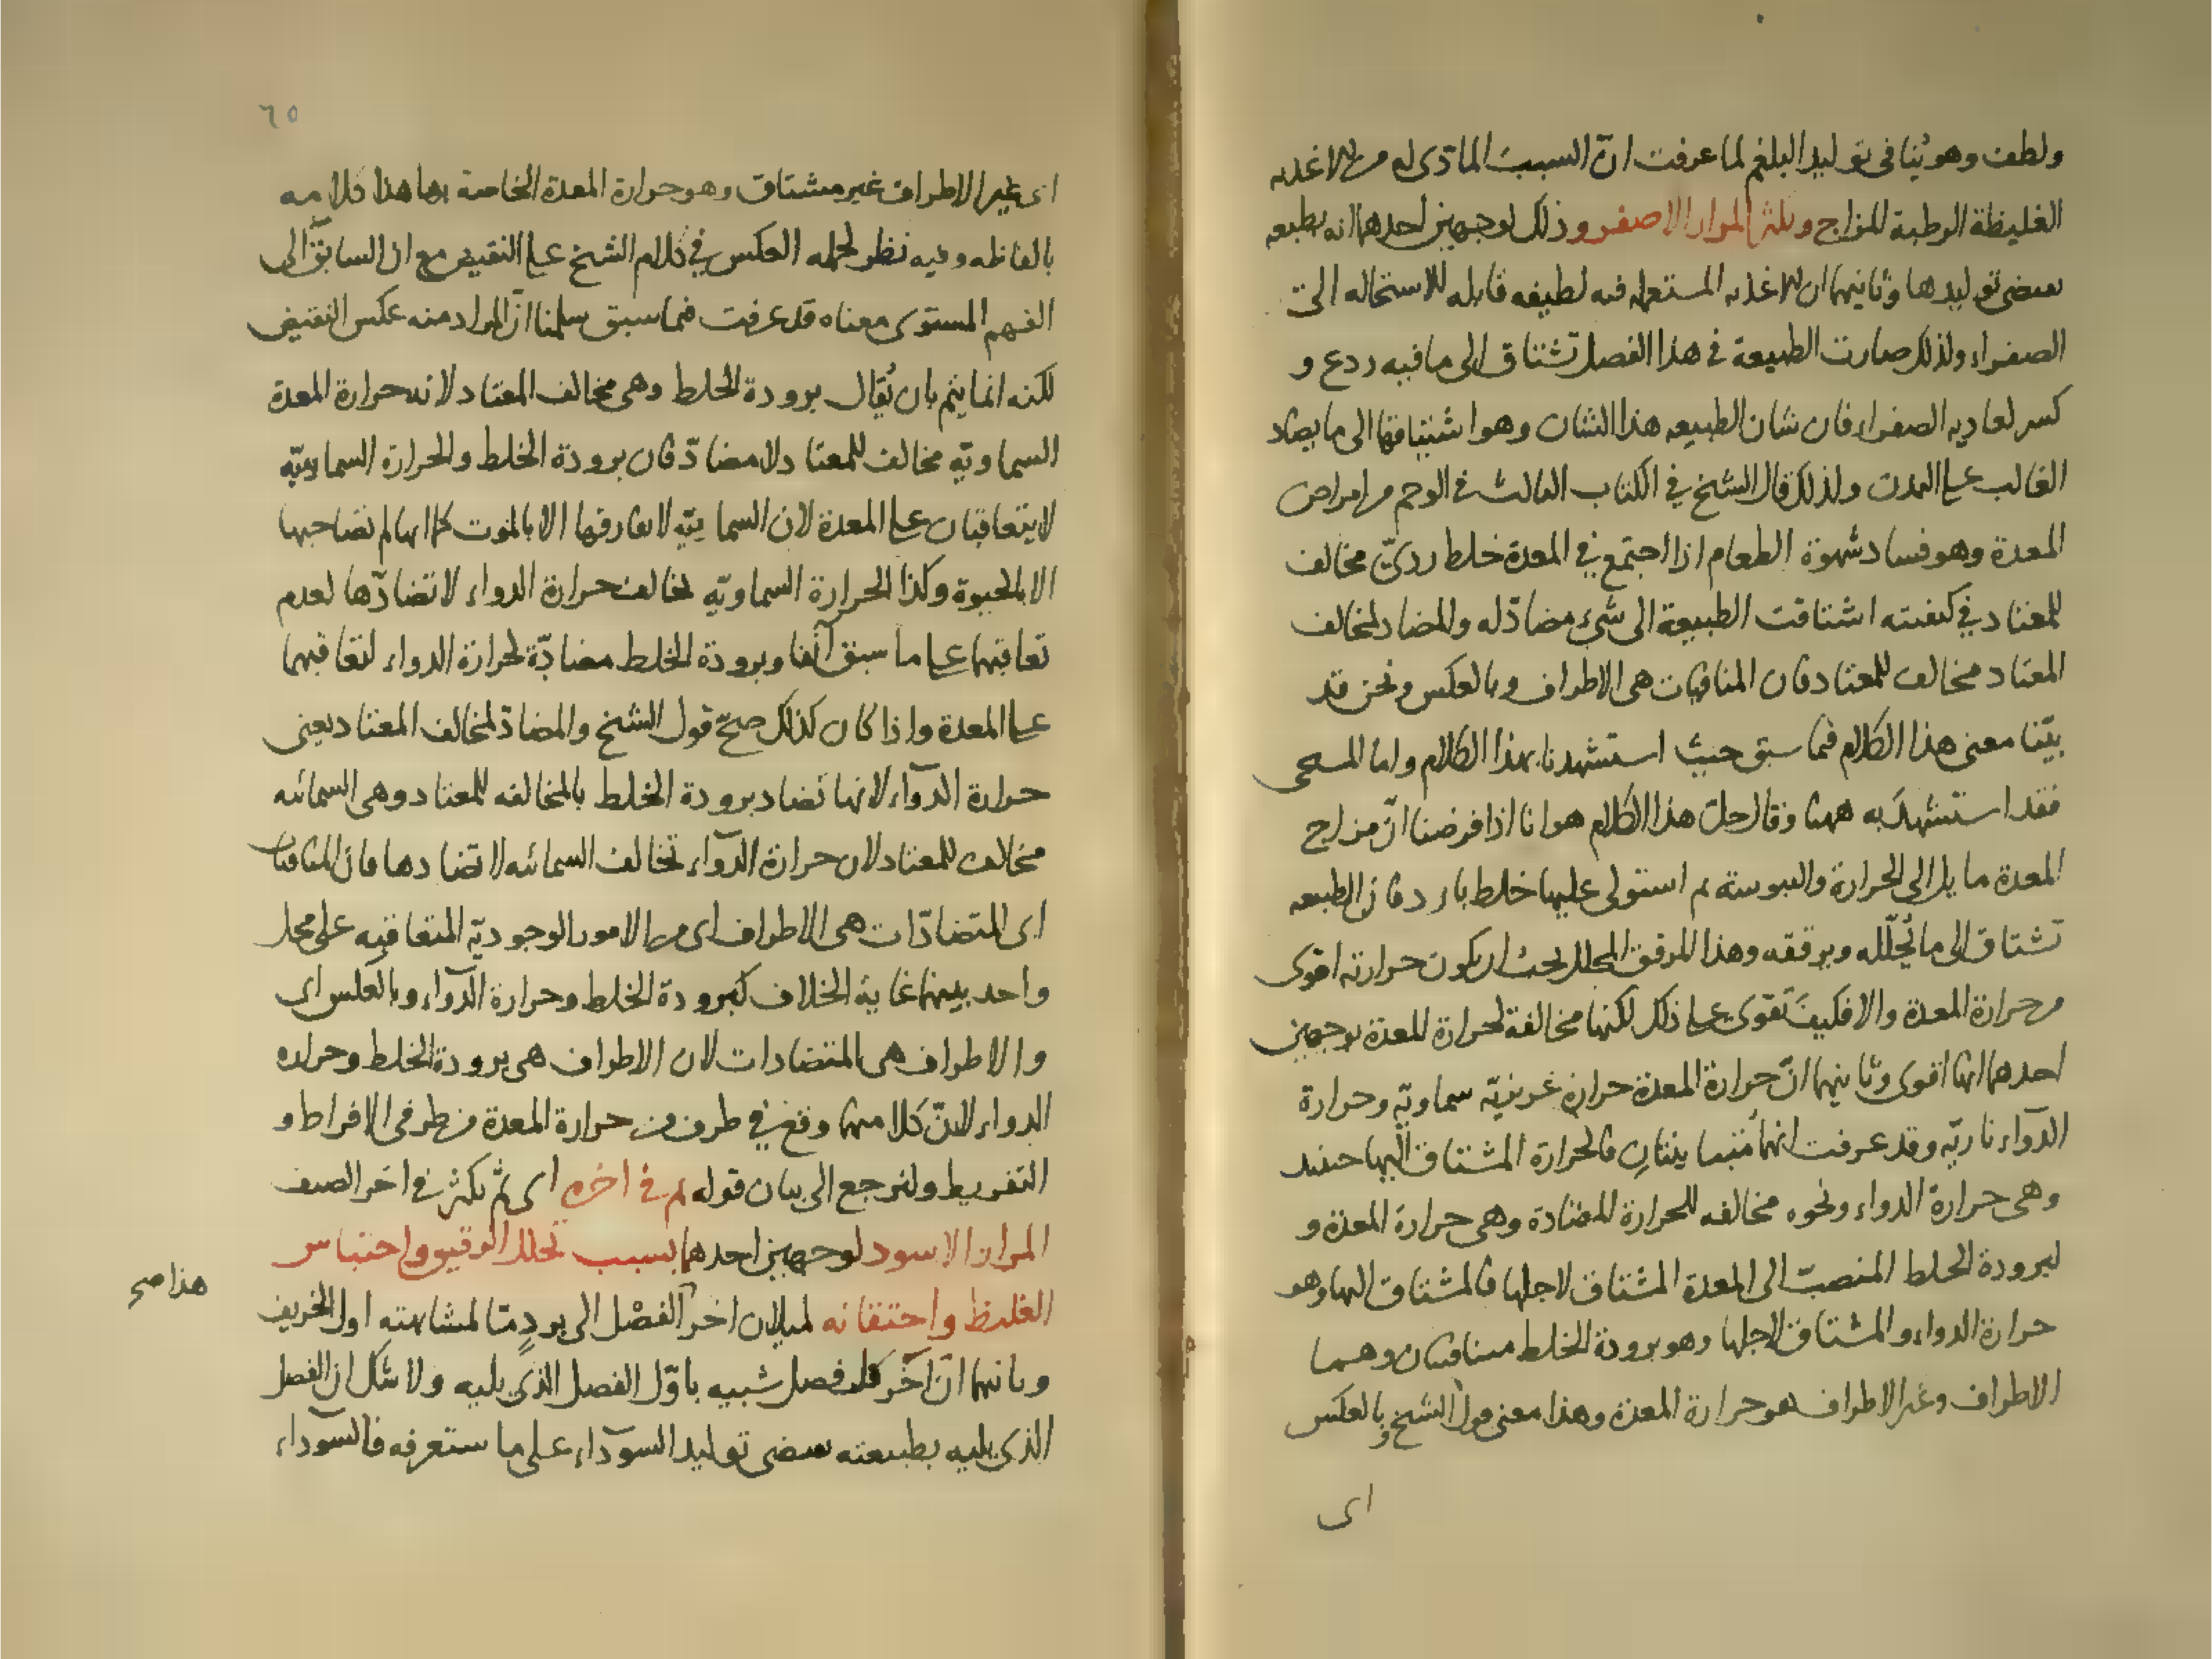 ولطف وهو ينافى توليد البلغم لما عرفت انّ السبب المادّى له من الاغذيه
الغليظة الرطبة المزاج ويكثر المرار الاصفر وذلك لوجهين احدهما انه بطبعه
يقتضى توليدها وثانيهما ان الاغذيه المستعمله فيه لطيفه قابله للاستحاله الى
الصفراء ولذلك صارت الطبيعة فى هذا الفصل تشتاق الى ما فيه ردع و
كسر لعاديه الصفراء فان شان الطبيعه هذا الشان وهو اشتياقها الى ما يضاد
الغالب على البدن ولذلك قال الشيخ فى الكتاب الثالث فى الوحم من امراض
المعدة وهو فساد شهوة الطعام اذا اجتمع فى المعدة خلط ردىّ مخالف
للمعتاد فى كيفيته اشتاقت الطبيعة الى شىء مضادّ له والمضاد لمخالف
المعتاد مخالف للمعتاد فان المنافيات هى الاطراف وبالعكس ونحن قد
بيّنا معنى هذا الكلام فيما سبق حيث استشهدنا بهذا الكلام واما المسيحى
فقد استشهد به ههنا وقال حل هذا الكلام هو انا اذا فرضنا انّ مزاج
المعدة مايل الى الحرارة واليبوسة ثم استولى عليها خلط بارد فان الطبيعه
تشتاق الى ما يحلّله ويرققه وهذا المرقق المحلل يجب ان يكون حرارته اقوى
من حرارة المعدة والا فكيف تقوى على ذلك لكنها مخالفة لحرارة المعدة بوجهين
احدهما انها اقوى وثانيهما انّ حرارة المعدة حرارة غريزيّة سماويّه وحرارة
الدواء ناريّه وقد عرفت انهما متباينتان فالحرارة المشتاق اليها حينئذ
وهى حرارة الدواء ونحوه مخالفه للحرارة المضادة وهى حرارة المعدة و
لبرودة الخلط المنصبّ الى المعدة المشتاق لاجلها فالمشتاق اليها وهو
حرارة الدواء والمشتاق لاجلها وهو برودة الخلط متنافيان وهما
الاطراف وغير الاطراف هو حرارة المعدة وهذا معنى قول الشيخ وبالعكس
اى
٦٥
اى غير الاطراف غير مشتاق وهو حرارة المعدة الخاصة بها هذا كلامه
بالفاظه وفيه نظر لحمله العكس فى كلام الشيخ على النقيض مع ان السابق الى
الفهم المستوى معناه قد عرفت فيما سبق سلمنا انّ المراد منه عكس النقيض
لكنه انما يتم بان يُقال برودة الخلط وهى مخالف المعتاد لانه حرارة المعدة
السماويّه مخالف للمعتاد لا مضادّ فان برودة الخلط والحرارة السماويّه
لا يتعاقبان على المعدة لان السمايّيه لا يفارقها الا بالموت كما انها لم تصاحبها
الا بالحيوة وكذا الحرارة السماويّه تخالف حرارة الدواء لا تضادّها لعدم
تعاقبهما على ما سبق آنفا وبرودة الخلط مضادّة لحرارة الدواء لتعاقبهما
على المعدة واذا كان كذلك صحّ قول الشيخ والمضادّ لمخالف المعتاد يعنى
حرارة الدوآء لانها تضاد برودة الخلط بالمخالفه للمعتاد وهى السمائيه
مخالف للمعتاد لان حرارة الدوآء تخالف السمائيه لا تضادها فان المنافيات
اى المتضادّات هى الاطراف اى من الامور الوجوديّه المتعاقبه على محل
واحد بينهما غاية الخلاف كبرودة الخلط وحرارة الدوآء وبالعكس اى
والاطراف هى المتضادات لان الاطراف هى برودة الخلط وحراره
الدواء لانّ كلا منهما وقع فى طرف من حرارة المعدة من طرفى الافراط و
التفريط ولنرجع الى بيان قوله ثم فى اخره اى ثمّ يكثر فى اخر الصيف
المرار الاسود لوجهين احدهما بسبب تحلل الرقيق واحتباس
الغليظ واحتقانه لميلان اخر الفصل الى بردٍ مّا لمشابهته اول الخريف
هذا صح
وثانيهما انّ آخر كل فصل شبيه باوّل الفصل الذى يليه ولا شك ان الفصل
الذى يليه بطبيعته يقتضى توليد السوداء على ما ستعرفه فالسوداء